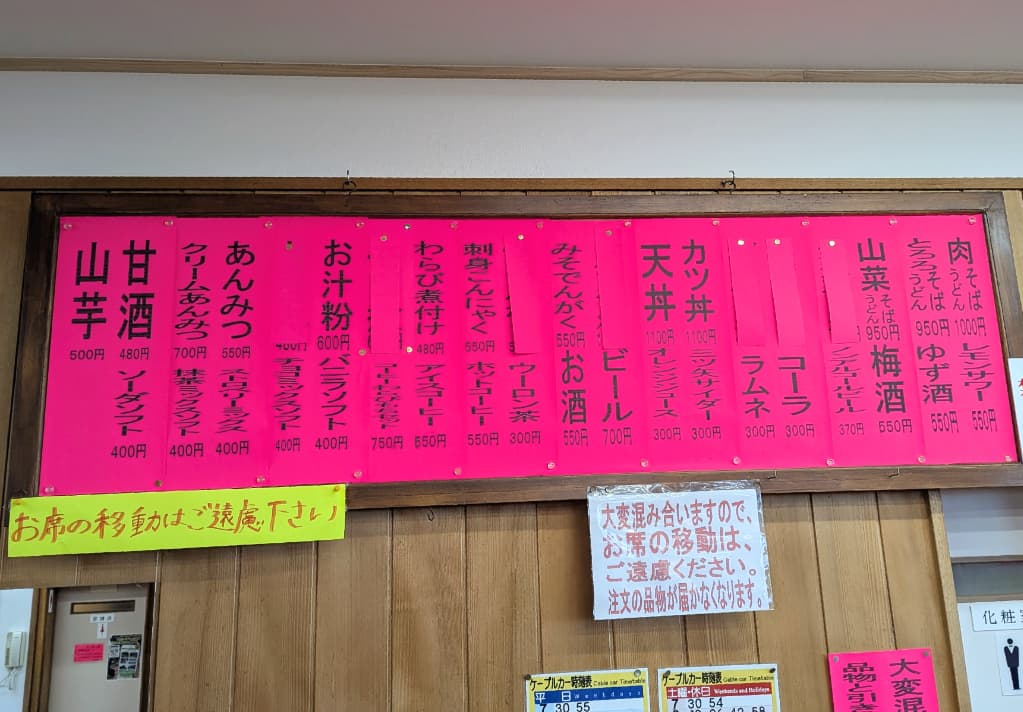 肉そばうどん 1000円
とろろそばうどん 950円
山菜そばうどん 950円
カツ丼 1100円
天丼 1100円
みそでんがく 550円
刺身こんにゃく 550円
わらび煮付け 480円
お汁粉 600円
400円
あんみつ 550円
クリームあんみつ 700円
甘酒 480円
山芋 500円
レモンサワー 550円
ゆず酒 550円
梅酒 550円
ノンアルコールビール 370円
コーラ 300円
ラムネ 300円
三ツ矢サイダー 300円
オレンジジュース 300円
ビール 700円
お酒 550円
ウーロン茶 300円
ホットコーヒー 550円
アイスコーヒー 550円
750円
バニラソフト 400円
チョコミックスソフト 400円
ストロベリーミックス 400円
抹茶ミックスソフト 400円
ソーダソフト 400円
お席の移動はご遠慮下さい
大変混み合いますので、
お席の移動は、
ご遠慮ください。
注文の品物が届かなくなります。
ケーブルカー時刻表 Cable car Timetable
平日 Weekdays
7 30 55
ケーブルカー時刻表 Cable car Timetable
土曜・休日 Weekends and Holidays
7 30 54
大変混
品物と引き
化粧室